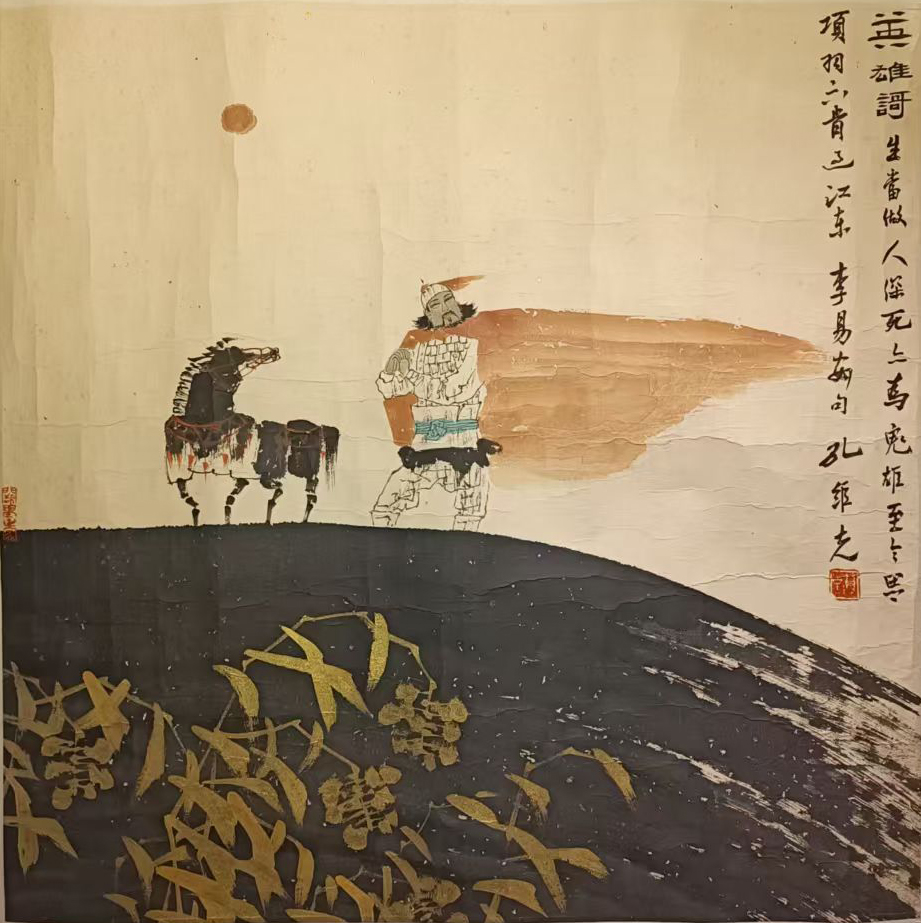 英雄謌 生當做人傑死亦為鬼雄至今思
項羽不肯過江東 李易安句 孔維克